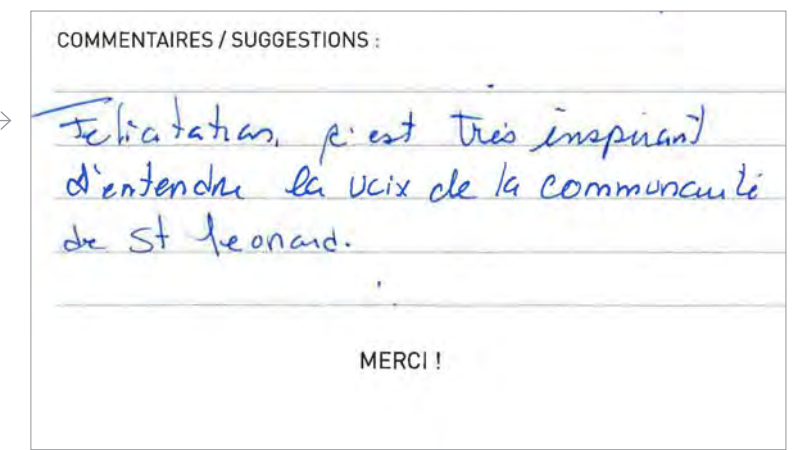 COMMENTAIRES / SUGGESTIONS :
Felicitations, c'est très inspirant
d'entendre la voix de la communauté
de St Leonard.
MERCI !